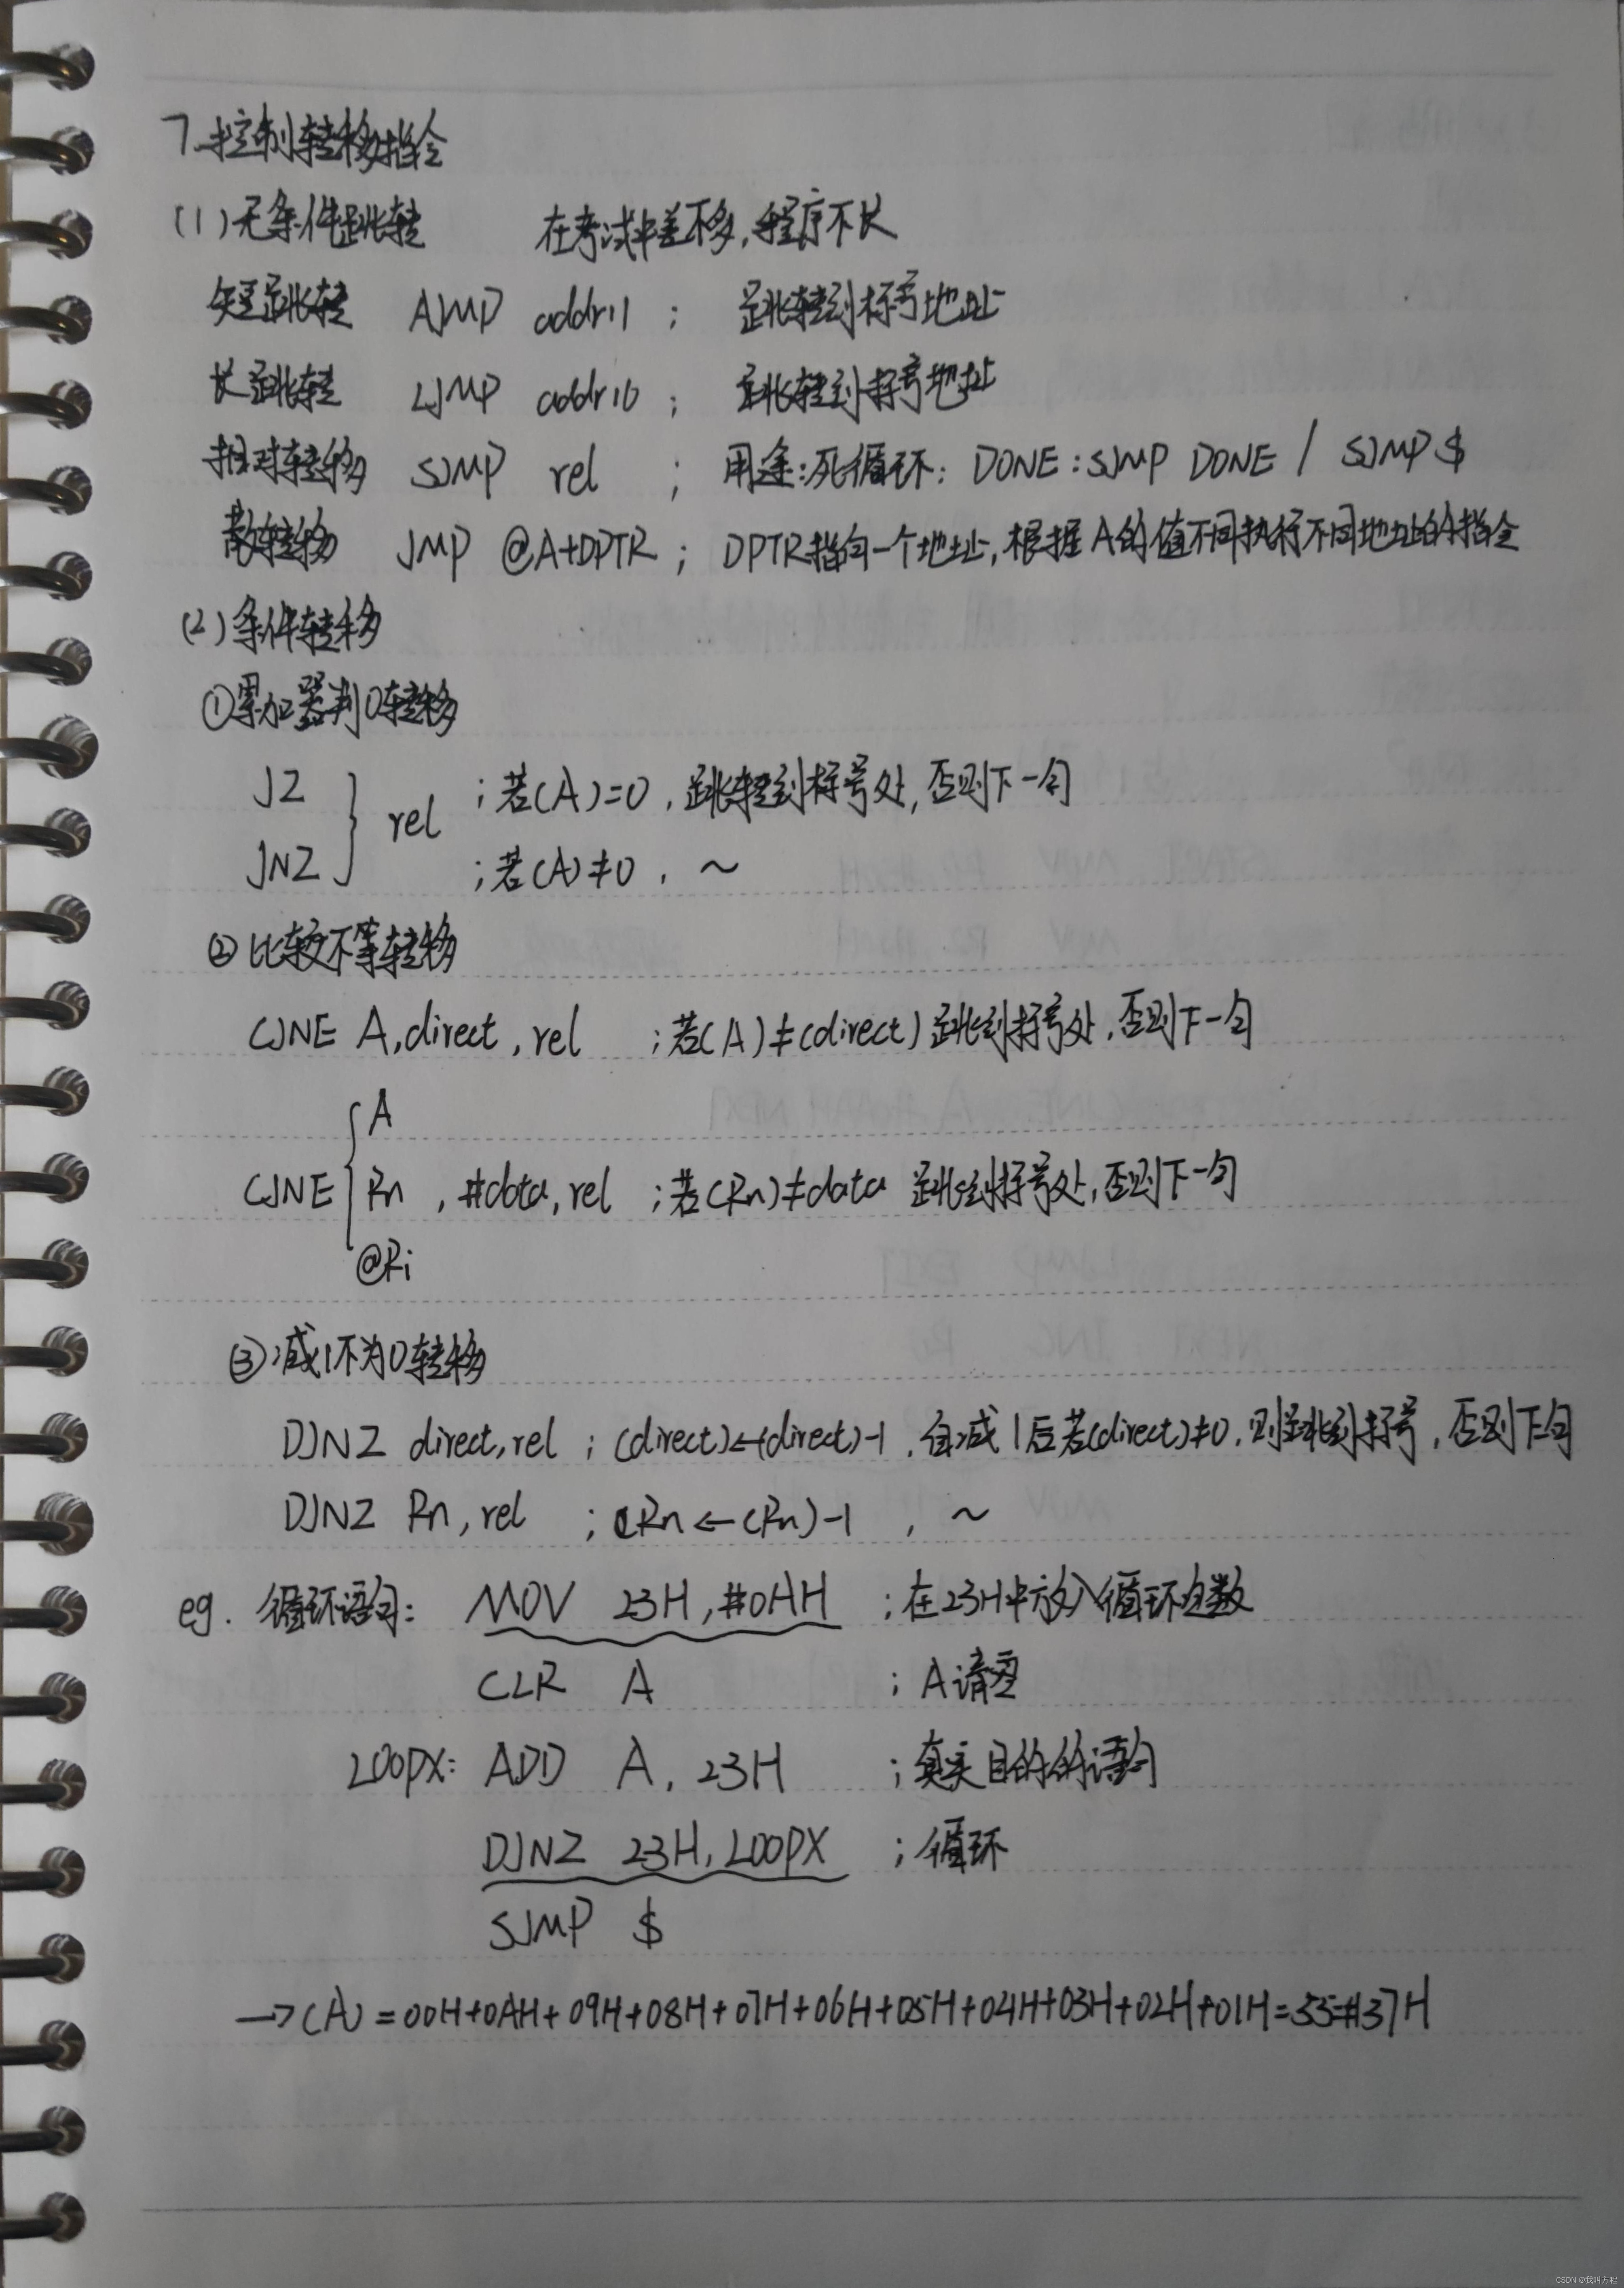 7.控制转移指令
(1)无条件跳转 在考试中差不多,程序不长
短跳转 AJMP addr11 ; 跳转到标号地址
长跳转 LJMP addr16 ; 跳转到标号地址
相对转移 SJMP rel ; 用途:死循环: DONE:SJMP DONE / SJMP $
散转移 JMP @A+DPTR ; DPTR指向一个地址,根据A的值不同执行不同地址的指令
(2)条件转移
①累加器判0转移
JZ ;若(A)=0,跳转到标号处,否则下一句
} rel
JNZ ;若(A)≠0, ~
②比较不等转移
CJNE A,direct,rel ;若(A)≠(direct)跳到标号处,否则下一句
{ A
CJNE Rn ,#data,rel ;若(Rn)≠data 跳到标号处,否则下一句
@Ri
③减1不为0转移
DJNZ direct,rel ; (direct)←(direct)-1,自减1后若(direct)≠0,则跳到标号,否则下一句
DJNZ Rn,rel ; (Rn←(Rn)-1 , ~
eg. 循环语句: MOV 23H,#0AH ;在23H中放入循环次数
CLR A ;A清空
LOOPX: ADD A,23H ;真实目的的语句
DJNZ 23H,LOOPX ;循环
SJMP $
→(A)=00H+0AH+09H+08H+07H+06H+05H+04H+03H+02H+01H=55=#37H
CSDN @我叫方程